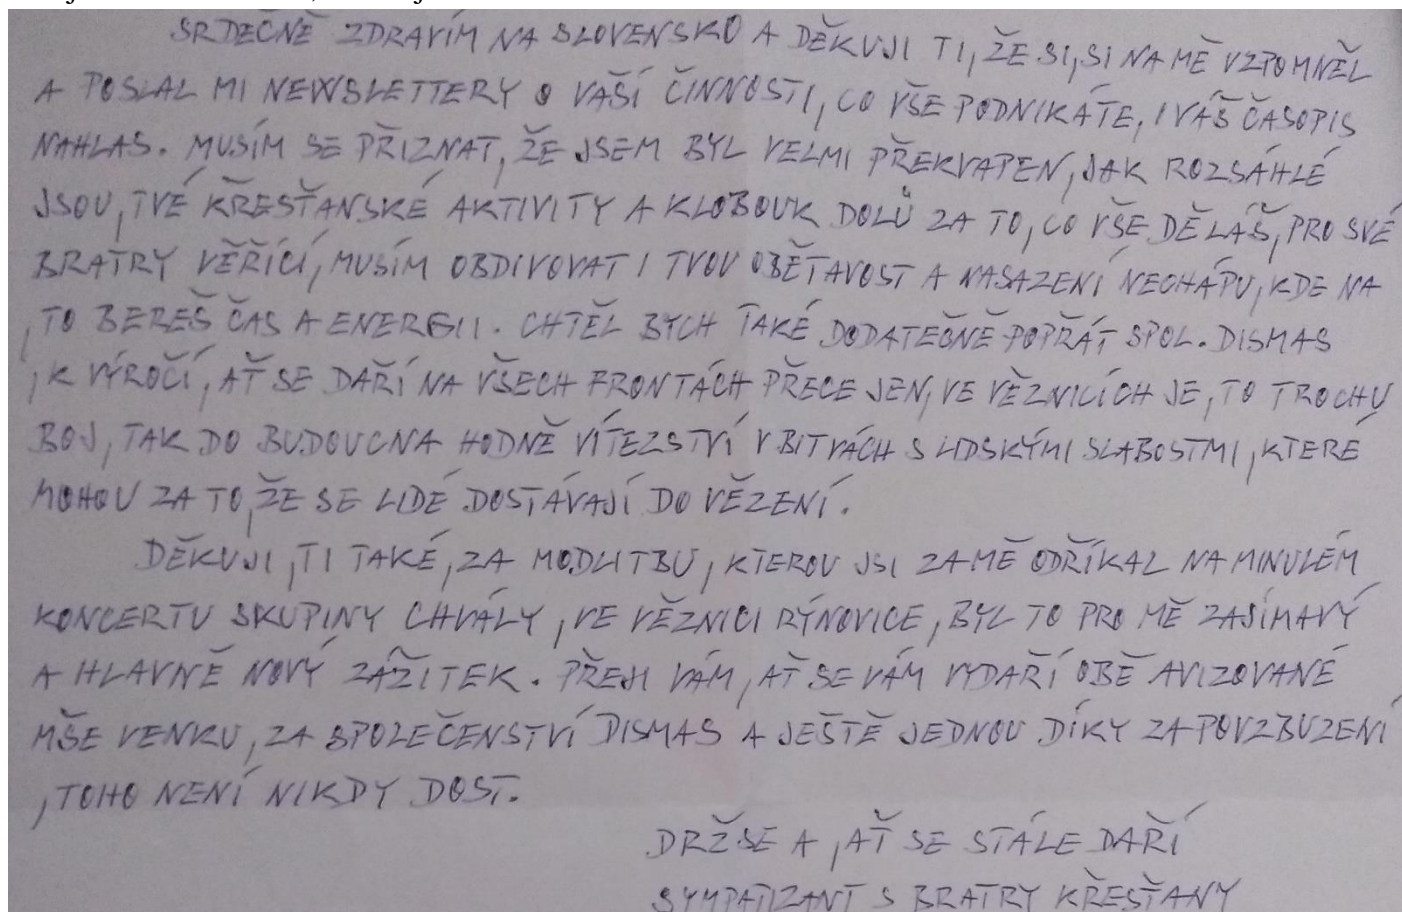 SRDEČNĚ ZDRAVÍM NA SLOVENSKO A DĚKUJI TI, ŽE SI, SI NA MĚ VZPOMNĚL
A POSLAL MI NEWSLETTERY O VAŠÍ ČINNOSTI, CO VŠE PODNIKÁTE, I VÁŠ ČASOPIS
NAHLAS. MUSÍM SE PŘIZNAT, ŽE JSEM BYL VELMI PŘEKVAPEN, JAK ROZSÁHLÉ
JSOU, TVÉ KŘESŤANSKÉ AKTIVITY A KLOBOUK DOLŮ ZA TO, CO VŠE DĚLÁŠ, PRO SVÉ
BRATRY VĚŘÍCÍ, MUSÍM OBDIVOVAT I TVOU OBĚTAVOST A NASAZENÍ NECHÁPU, KDE NA
, TO BEREŠ ČAS A ENERGII. CHTĚL BYCH TAKÉ DODATEČNĚ POPŘÁT SPOL. DISMAS
, K VÝROČÍ, AŤ SE DAŘÍ NA VŠECH FRONTÁCH PŘECE JEN, VE VĚZNICÍCH JE, TO TROCHU
BOJ, TAK DO BUDOUCNA HODNĚ VÍTEZSTVÍ V BITVÁCH S LIDSKÝMI SLABOSTMI, KTERÉ
MOHOU ZA TO, ŽE SE LIDÉ DOSTÁVAJÍ DO VĚZENÍ.
DĚKUJI, TI TAKÉ, ZA MODLITBU, KTEROU JSI ZA MĚ ODŘÍKAL NA MINULÉM
KONCERTU SKUPINY CHVÁLY, VE VĚZNICI RÝNOVICE, BYL TO PRO MĚ ZAJÍMAVÝ
A HLAVNĚ NOVÝ ZÁŽITEK. PŘEJI VÁM, AŤ SE VÁM VYDAŘÍ OBĚ AVIZOVANÉ
MŠE VENKU, ZA SPOLEČENSTVÍ DISMAS A JEŠTĚ JEDNOU DÍKY ZA POVZBUZENÍ
, TOHO NENÍ NIKDY DOST.
DRŽ SE A, AŤ SE STÁLE DAŘÍ
SYMPATIZANT S BRATRY KŘESŤANY